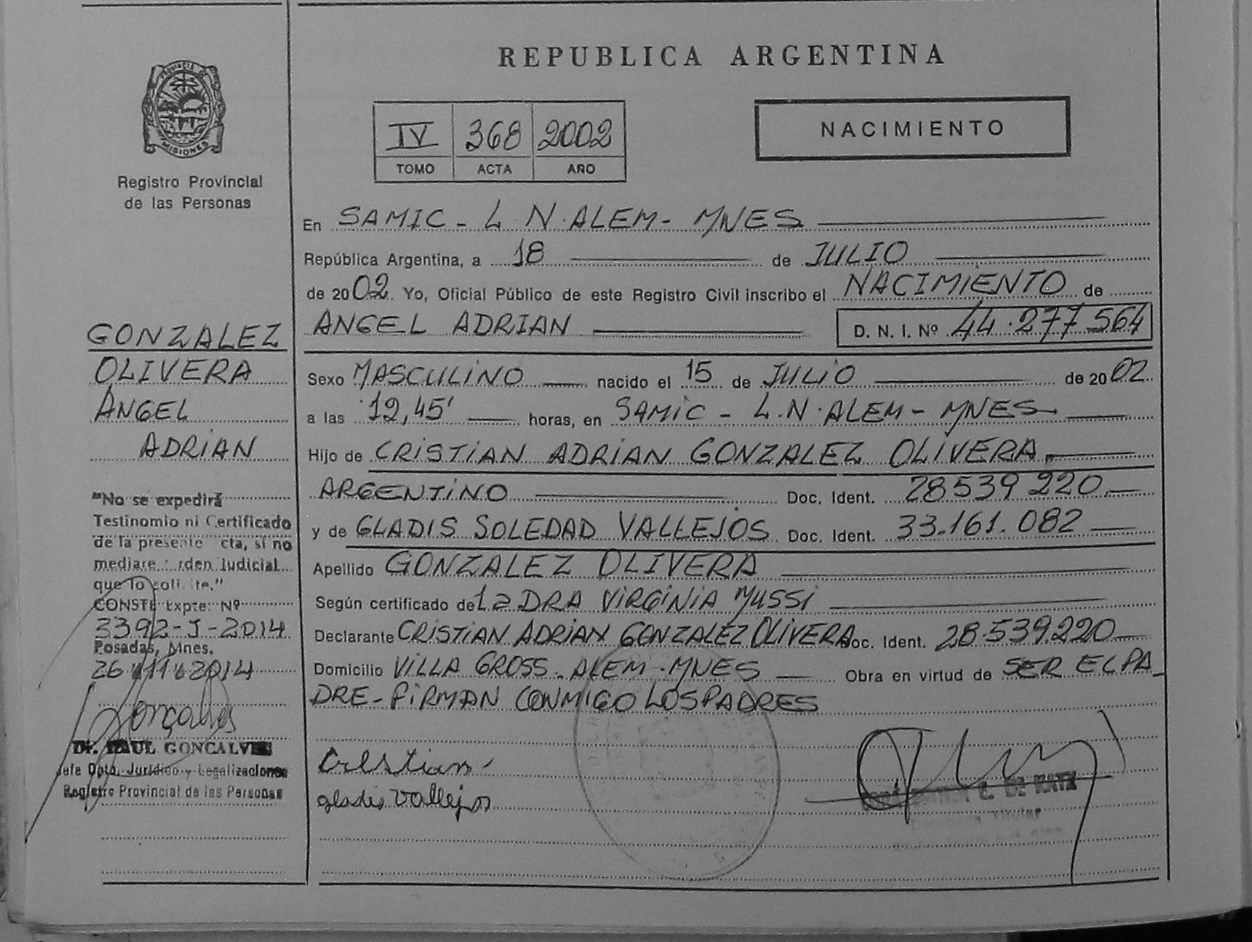 PROVINCIA DE
MISIONES
Registro Provincial
de las Personas
GONZALEZ
OLIVERA
ANGEL
ADRIAN
"No se expedirá
Testimonio ni Certificado
de la presente cta, si no
mediare rden Judicial
que lo soli te."
CONSTE Expte: Nº
3392-J-2014
Posadas, Mnes.
26 11 2014
Gonçalves
Dr. RAUL GONCALVES
Jefe Dpto. Jurídico y Legalizaciones
Registro Provincial de las Personas
REPUBLICA ARGENTINA
IV 368 2002
TOMO ACTA AÑO
NACIMIENTO
En SAMIC - L N. ALEM - MNES
República Argentina, a 18 de JULIO
de 2002. Yo, Oficial Público de este Registro Civil inscribo el NACIMIENTO de
ANGEL ADRIAN D. N. I. Nº 44.277.564
Sexo MASCULINO nacido el 15 de JULIO de 2002.
a las 12,45' horas, en SAMIC - L.N. ALEM - MNES
Hijo de CRISTIAN ADRIAN GONZALEZ OLIVERA
ARGENTINO Doc. Ident. 28539 220
y de GLADIS SOLEDAD VALLEJOS Doc. Ident. 33.161.082
Apellido GONZALEZ OLIVERA
Según certificado de La DRA VIRGINIA MUSSI
Declarante CRISTIAN ADRIAN GONZALEZ OLIVERA Doc. Ident. 28.539.220
Domicilio VILLA GROSS - ALEM - MNES Obra en virtud de SER EL PA
DRE - FIRMAN CONMIGO LOS PADRES
Cristian
gladis Vallejos